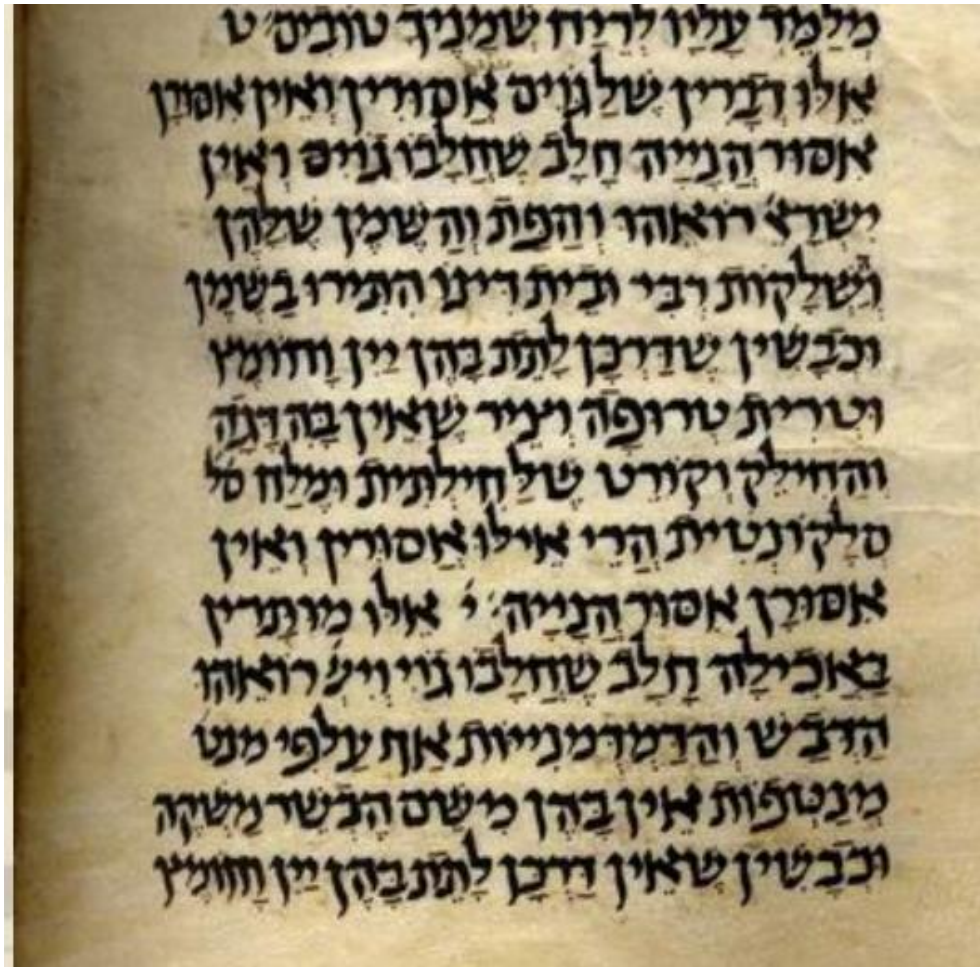 מלמד עליו לריח שמניך טובים׳ ט
אלו דברין שלגוים אסורין ואין אסורן
אסור הנייה חלב שחלבו גוים ואין
ישרא׳ רואהו והפת והשמן שלהן
ושלקות רבי ובית דינו התירו בשמן
וכבשין שדרכן לתת בהן יין וחומץ
וטרית טרופה וציר שאין בה דגה
והחילק וקורט שלחילתית ומלח סל
סלקונטית הרי אילו אסורין ואין
אסורן אסור הנייה׳ י אלו מותרין
באכילה חלב שחלבו גוי ויש׳ רואהו
הדבש והדמדמניות אף עלפי מנט
מנטפות אין בהן משם הכשר משקה
וכבשין שאין דרכן לתת בהן יין וחומץ